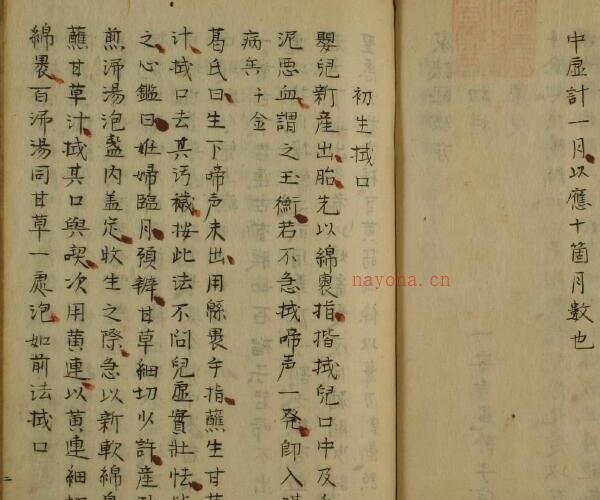 中虚計一月以應十箇月数也
初生拭口
嬰兒新産出胎先以綿裹指揩拭兒口中及
泥悪血謂之玉衡若不急拭啼声一発即入
病矣千金
葛氏曰生下啼声未出用緜裹手指蘸生甘
汁拭口去其汚穢按此法不問兒虚實壮怯
之心鑑曰妊婦臨月預辦甘草細切少許産
煎沸湯泡盞内盖定收生之際急以新軟綿
蘸甘草汁拭其口與喫次用黄連以黄連細
綿裹百沸湯同甘草一處泡如前法拭口
nayona.cn